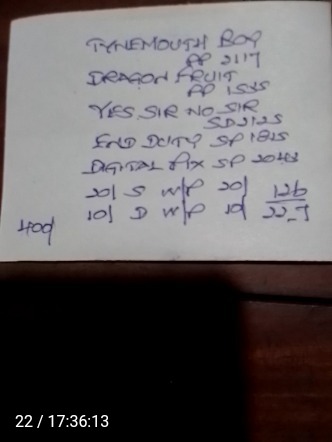 TYNEMOUTH BOY
PP 2117
DRAGON FRUIT
PP 1535
YES SIR NO SIR
SD 2125
SP 1825
DIGITAL SP
20/ S W/P 20/ 126
10/ D W/P 10/ 22-7
400/
22 / 17:36:13